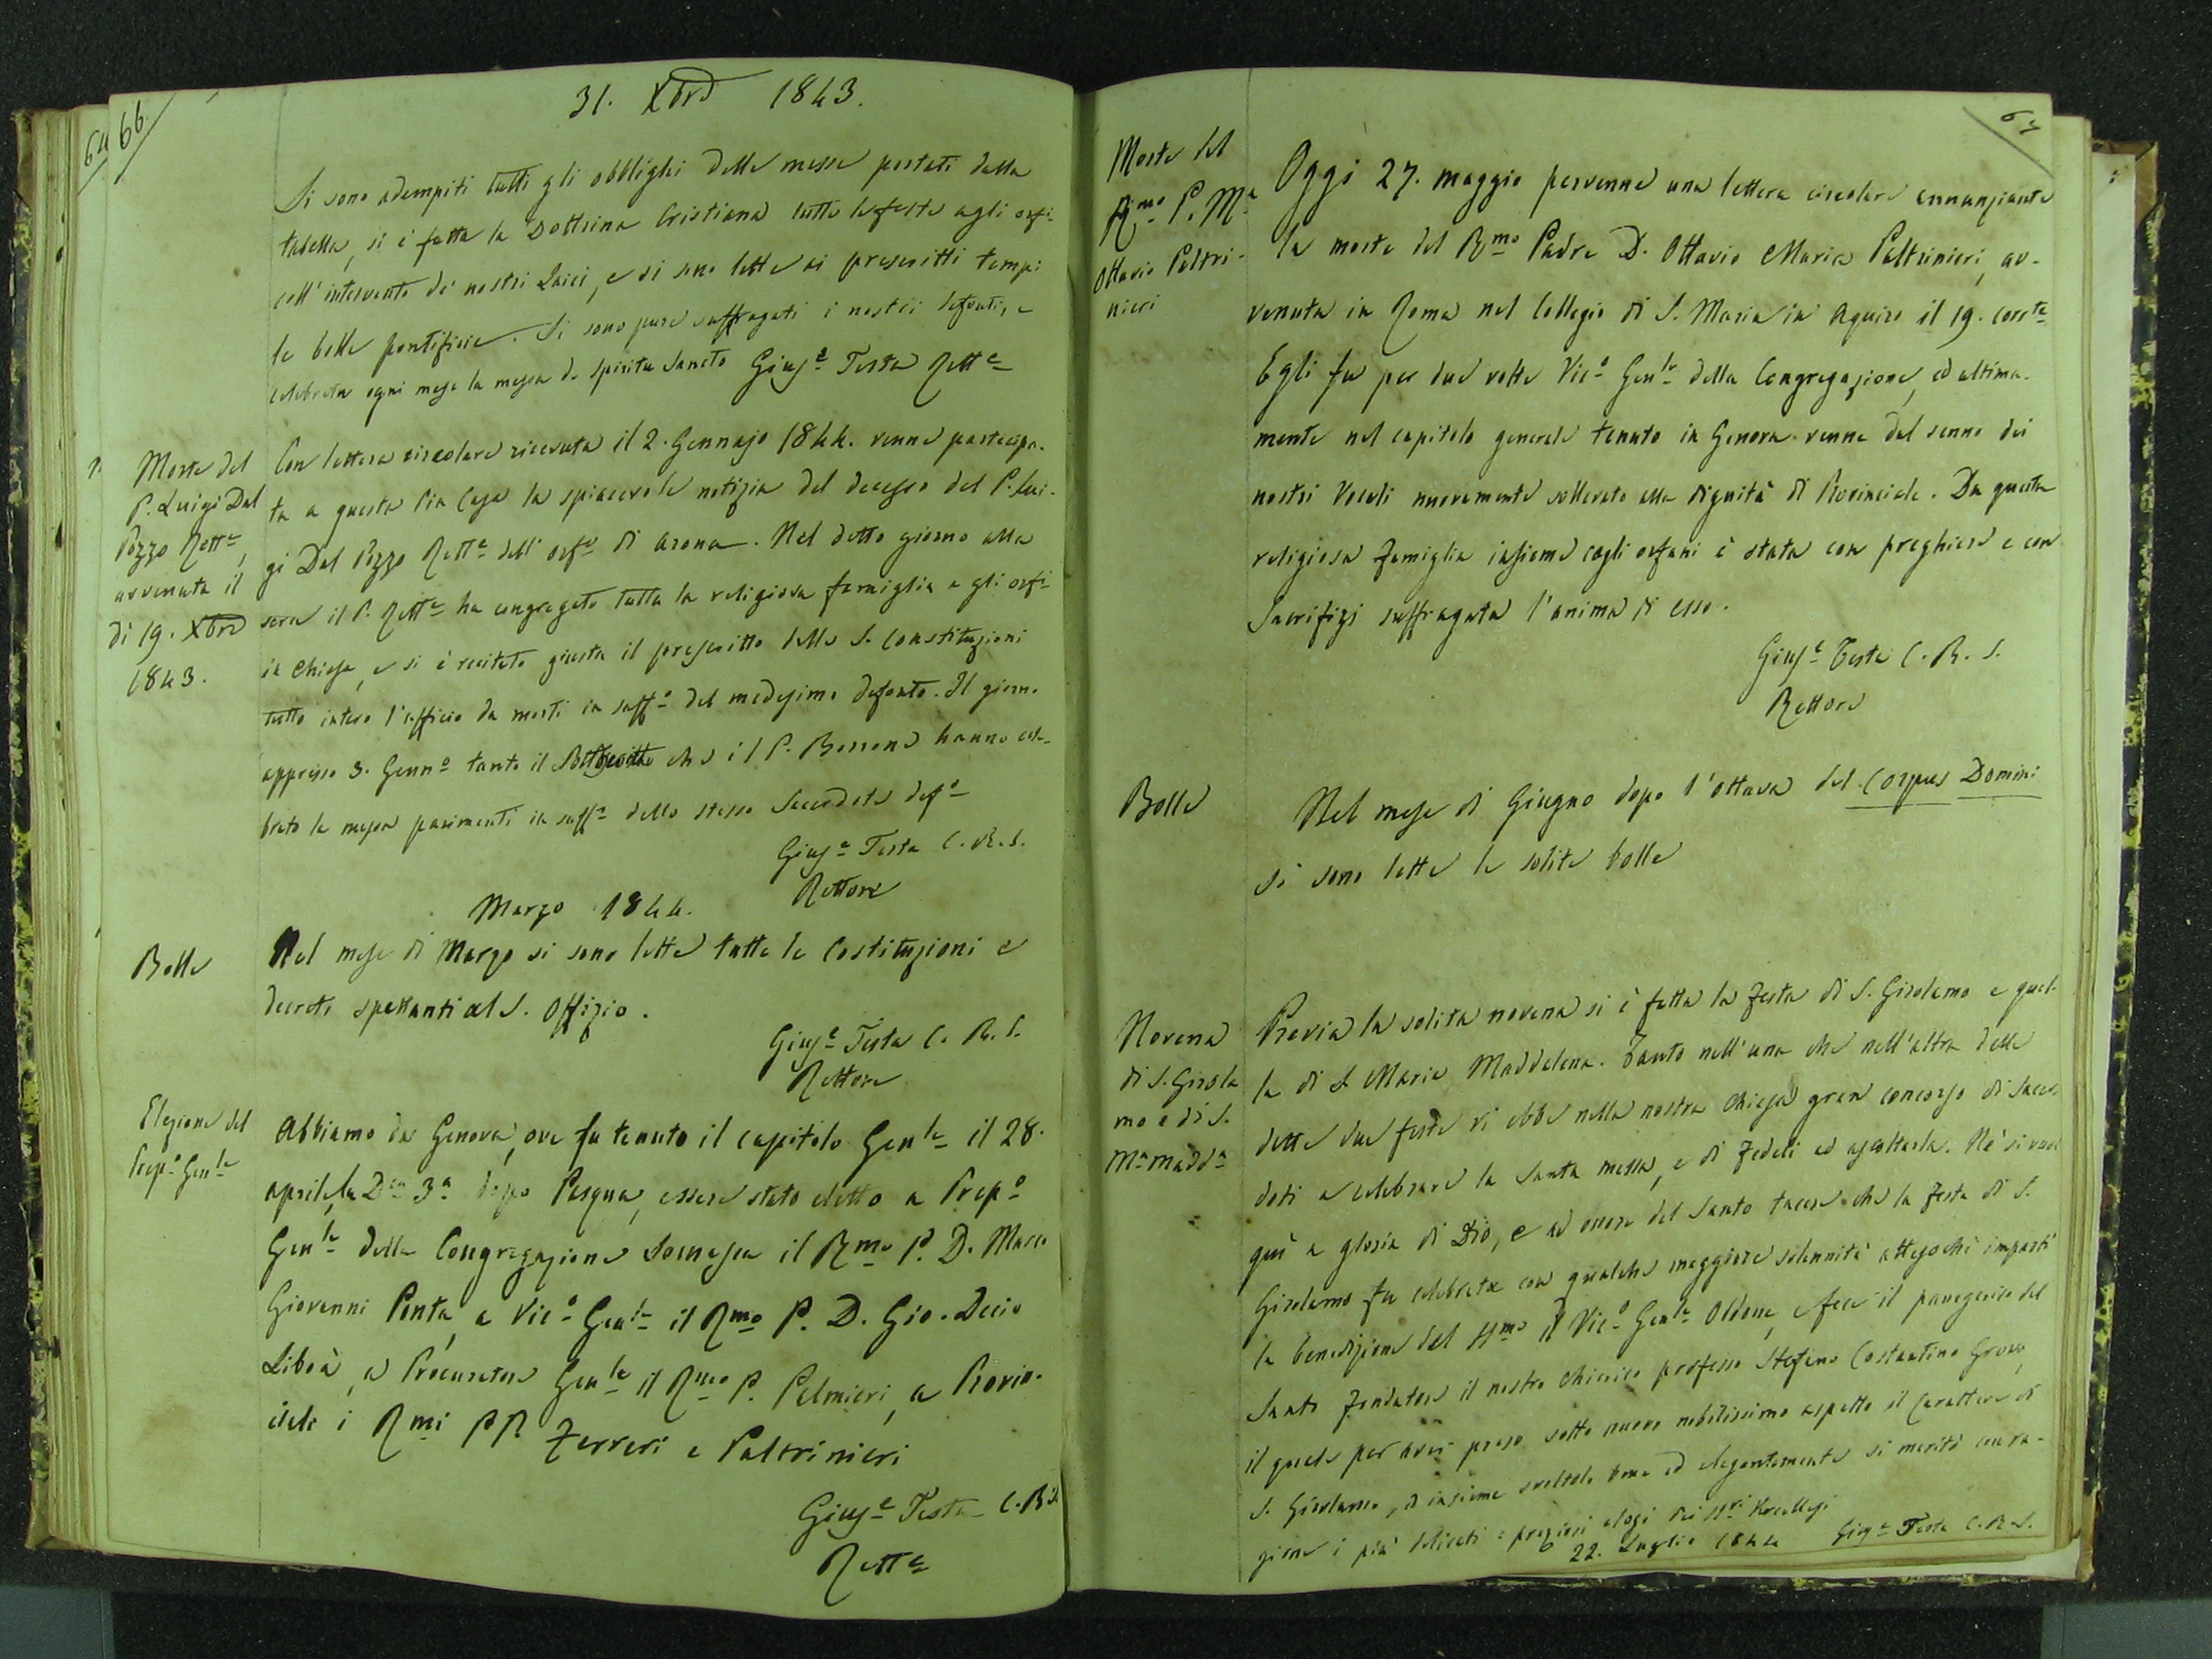 64
66
31. Xbre 1843.
Si sono adempiti tutti gli obblighi delle messe portati dalla
tabella, si è fatta la Dottrina Cristiana tutte le feste agli orfi-
coll'intervento de' nostri Laici, e si sono lette ai prescritti tempi
le bolle pontificie. Si sono pure suffragati i nostri defonti, e
celebrata ogni mese la messa de Spiritu Sancto Giuse Testa Rette
Morte del
P. Luigi Dal
Pozzo Rette,
avvenuta il
dì 19. Xbre
1843.
Con lettera circolare ricevuta il 2. Gennajo 1844. venne partecipa-
ta a questa Pia Casa la spiacevole notizia del decesso del P. Lui-
gi Dal Pozzo Rette dell'orfo di Arona. Nel detto giorno alla
sera il P. Rette ha congregato tutta la religiosa famiglia e gli orfi
in Chiesa, e si è recitato giusta il prescritto delle S. Constituzioni
tutto intero l'officio da morti in suffo del medesimo defonto. Il giorno
appresso 3. Genno tanto il Sottoscritto che il P. Borrone hanno cele-
brato la messa parimenti in suffo dello stesso Sacerdote defo
Giuse Testa C.R.S.
Rettore
Marzo 1844.
Bolle
Nel mese di Marzo si sono lette tutte le Costituzioni e
decreti spettanti al S. Offizio.
Giuse Testa C. R. S.
Rettore
Elezione del
Prepo Genle
Abbiamo da Genova, ove fu tenuto il capitolo Genle il 28.
aprile, la Dca 3a dopo Pasqua, essere stato eletto a Prepo
Genle della Congregazione Somasca il Rmo P. D. Marco
Giovanni Ponta, a Vico Genle il Rmo P. D. Gio. Decio
Liboà, a Procuratore Genle il Rmo P. Palmieri, a Provin-
ciale i Rmi PP. Ferreri e Paltrinieri
Giuse Testa C.R.S.
Rette
67
Morte del
Rmo P. Ma
Ottavio Paltri-
nieri
Oggi 27. maggio pervenne una lettera circolare annunziante
la morte del Rmo Padre D. Ottavio Maria Paltrinieri, av-
venuta in Roma nel Collegio di S. Maria in Aquiro il 19. corrte
Egli fu per due volte Vico Genle della Congregazione, ed ultima-
mente nel capitolo generale tenuto in Genova venne dal senno dei
nostri Vocali nuovamente sollevato alla dignità di Provinciale. Da questa
religiosa famiglia insieme cogli orfani è stata con preghiere e con
Sacrifizi suffragata l'anima di esso.
Giuse Testa C. R. S.
Rettore
Bolle
Nel mese di Giugno dopo l'ottava del Corpus Domini
si sono lette le solite bolle
Novena
di S. Girola
mo e di S.
Ma Madda
Previa la solita novena si è fatta la festa di S. Girolamo e quel-
la di S. Maria Maddalena. Tanto nell'una che nell'altra delle
dette due feste vi ebbe nella nostra Chiesa gran concorso di Sacer-
doti a celebrare la Santa messa, e di Fedeli ad ascoltarla. Nè si vuol
quì a gloria di Dio, e ad onore del Santo tacere che la festa di S.
Girolamo fu celebrata con qualche maggiore solennità attesochè impartì
la benedizione del SSmo il Vico Genle Oldone, e fece il panegirico del
Santo Fondatore il nostro Chierico professo Stefano Costantino Grosso,
il quale per aver preso sotto nuovo nobilissimo aspetto il Carattere di
S. Girolamo, e insieme svoltolo bene ed elegantemente si meritò con ra-
gione i più delicati e preziosi elogi dei Sri Vercellesi
22. Luglio 1844 Giuse Testa C.R.S.